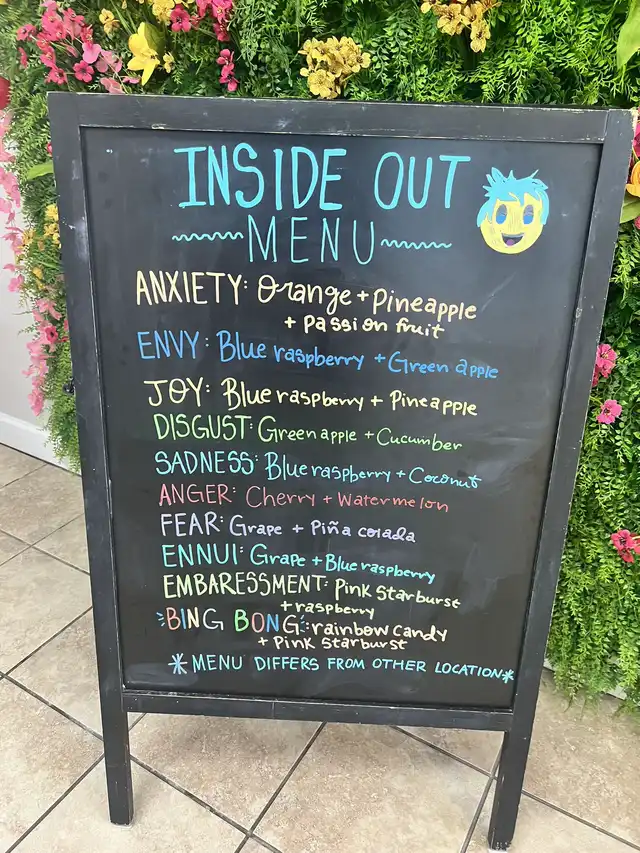 INSIDE OUT
MENU
ANXIETY: Orange + Pineapple
+ Passion fruit
ENVY: Blue raspberry + Green apple
JOY: Blue raspberry + Pineapple
DISGUST: Green apple + Cucumber
SADNESS: Blue raspberry + Coconut
ANGER: Cherry + Watermelon
FEAR: Grape + Piña colada
ENNUI: Grape + Blue raspberry
EMBARESSMENT: Pink Starburst
+ raspberry
BING BONG: rainbow candy
+ Pink Starburst
*MENU DIFFERS FROM OTHER LOCATION*